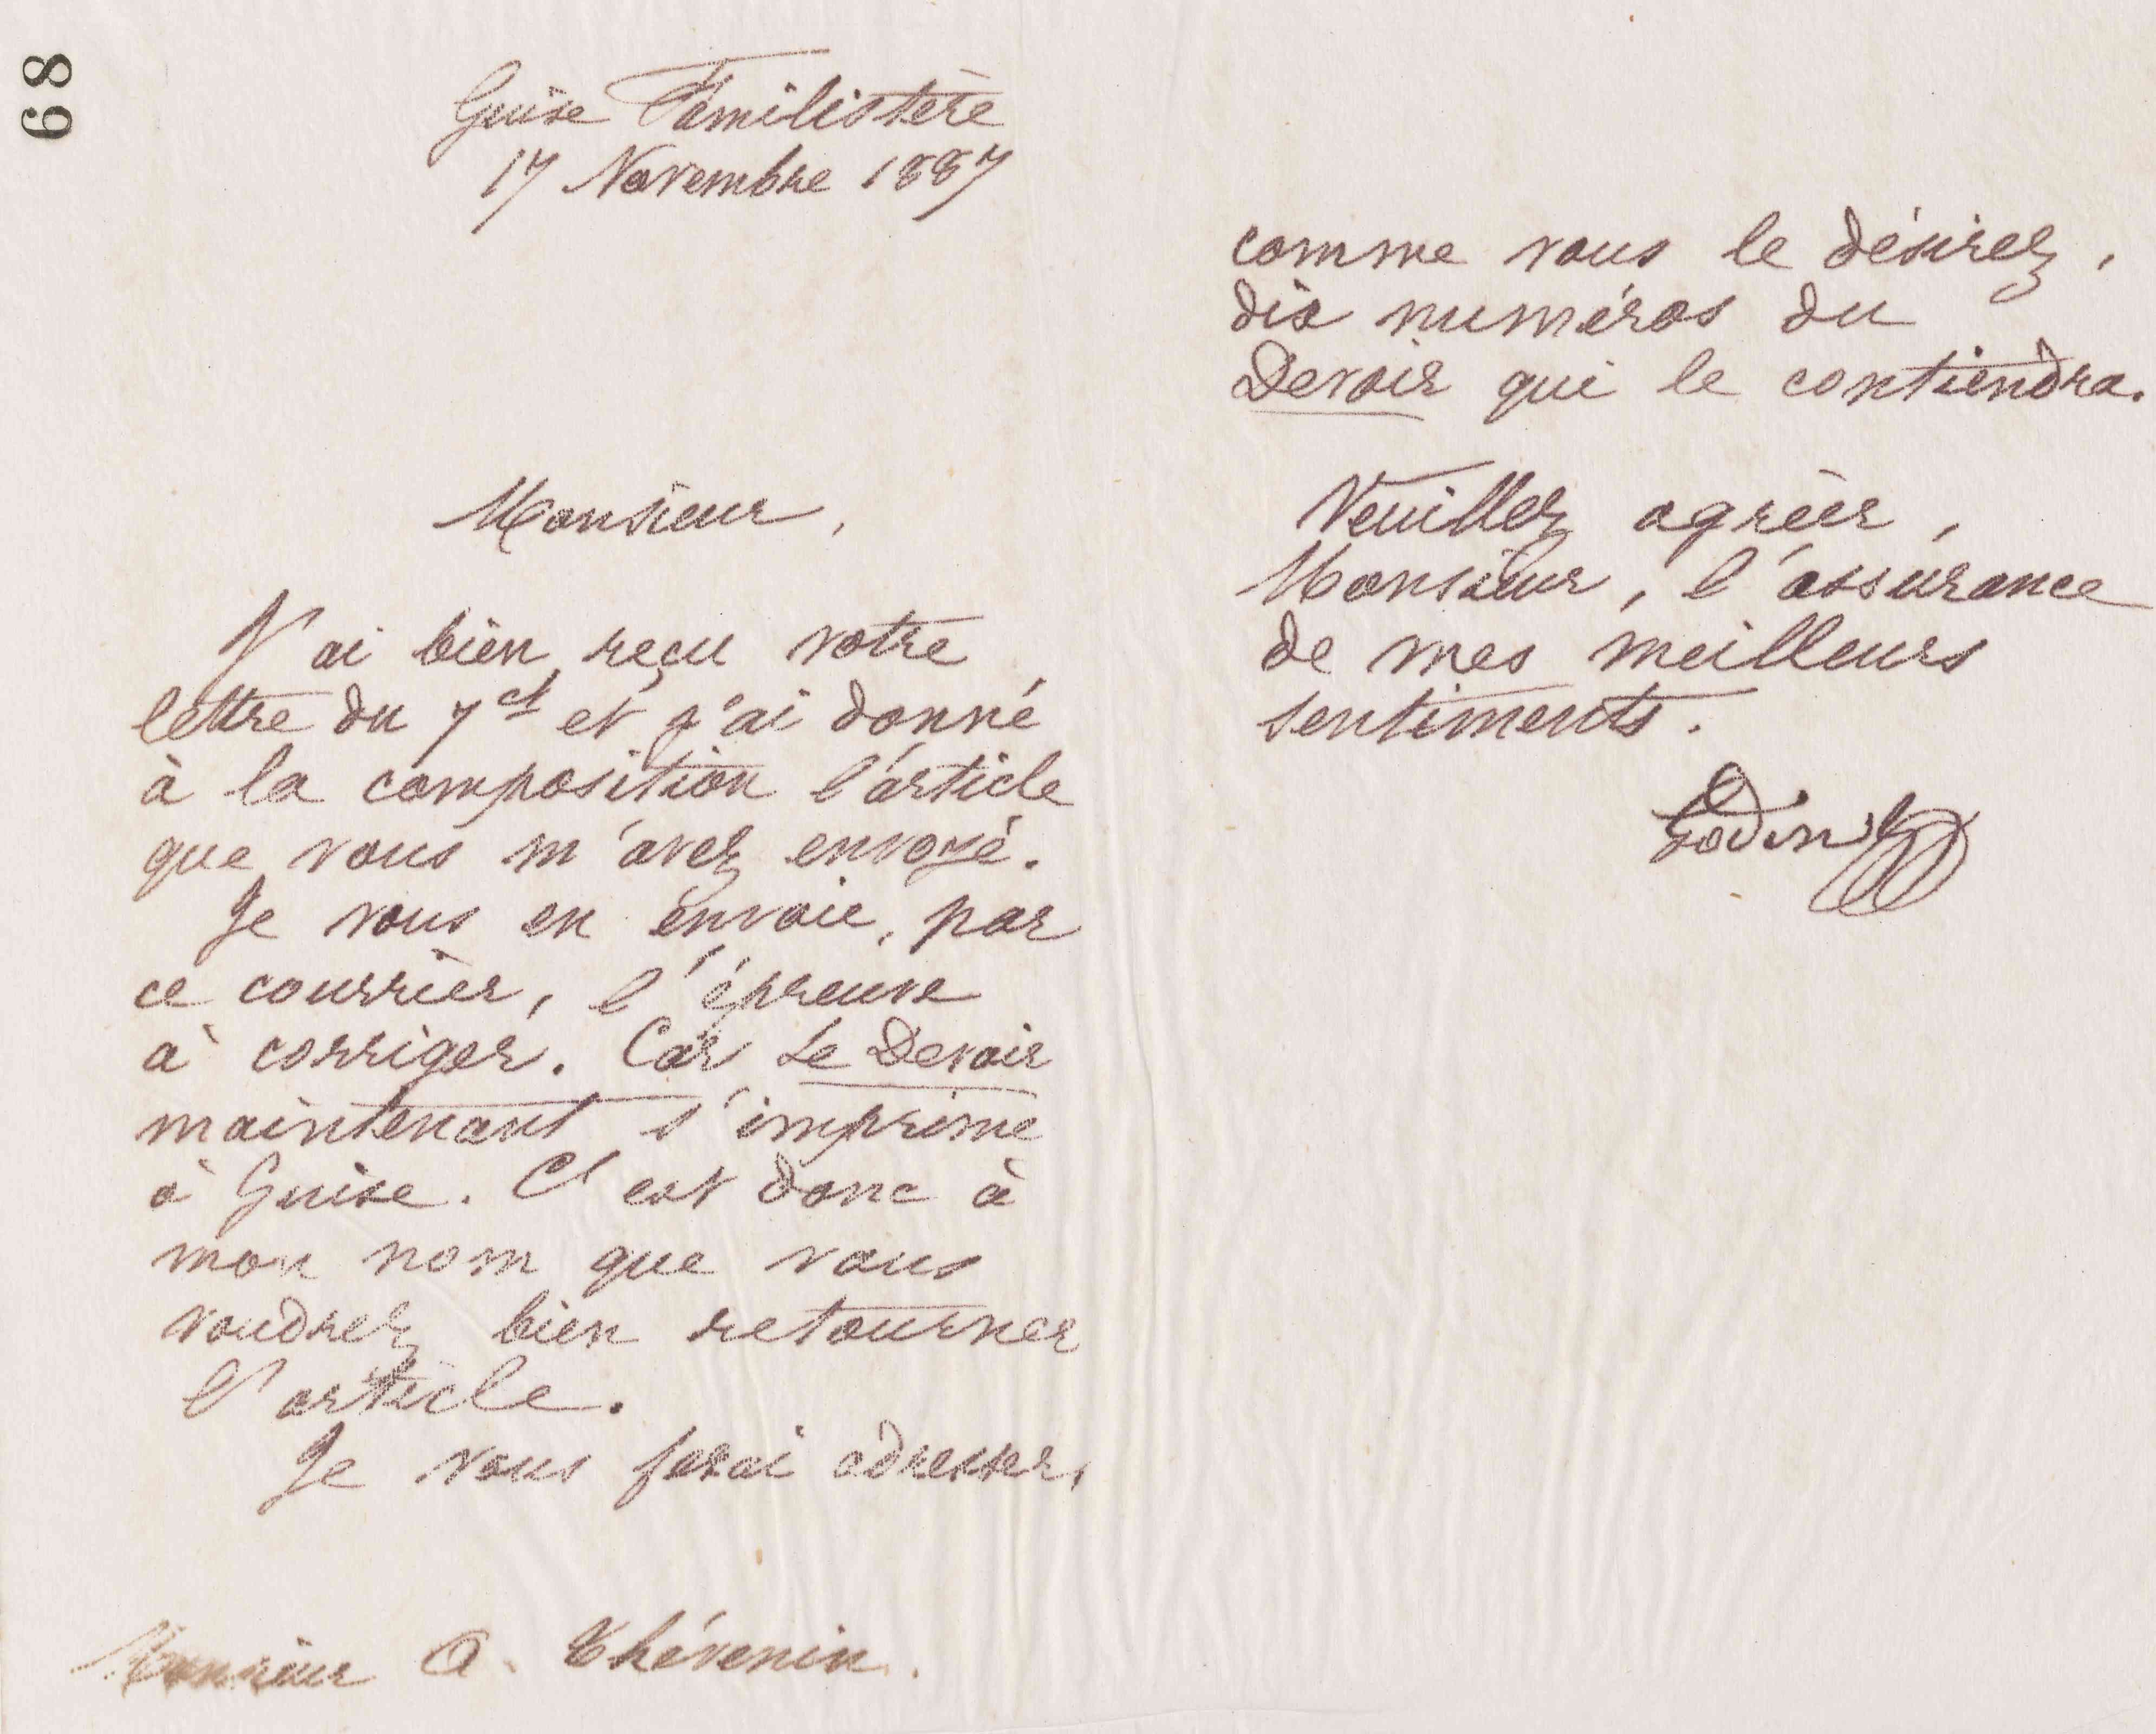 68
Guise Familistère
17 Novembre 1887
Monsieur,
J'ai bien reçu votre
lettre du 7 ct et j'ai donné
à la composition l'article
que vous m'avez envoyé.
Je vous en envoie, par
ce courrier, l'épreuve
à corriger. Car Le Devoir
maintenant s'imprime
à Guise. C'est donc à
mon nom que vous
voudrez bien retourner
l'article.
Je vous ferai adresser,
Monsieur A. Thévenin.
comme vous le désirez,
dix numéros du
Devoir qui le contiendra.
Veuillez agréer,
Monsieur, l'assurance
de mes meilleurs
sentiments.
Godin